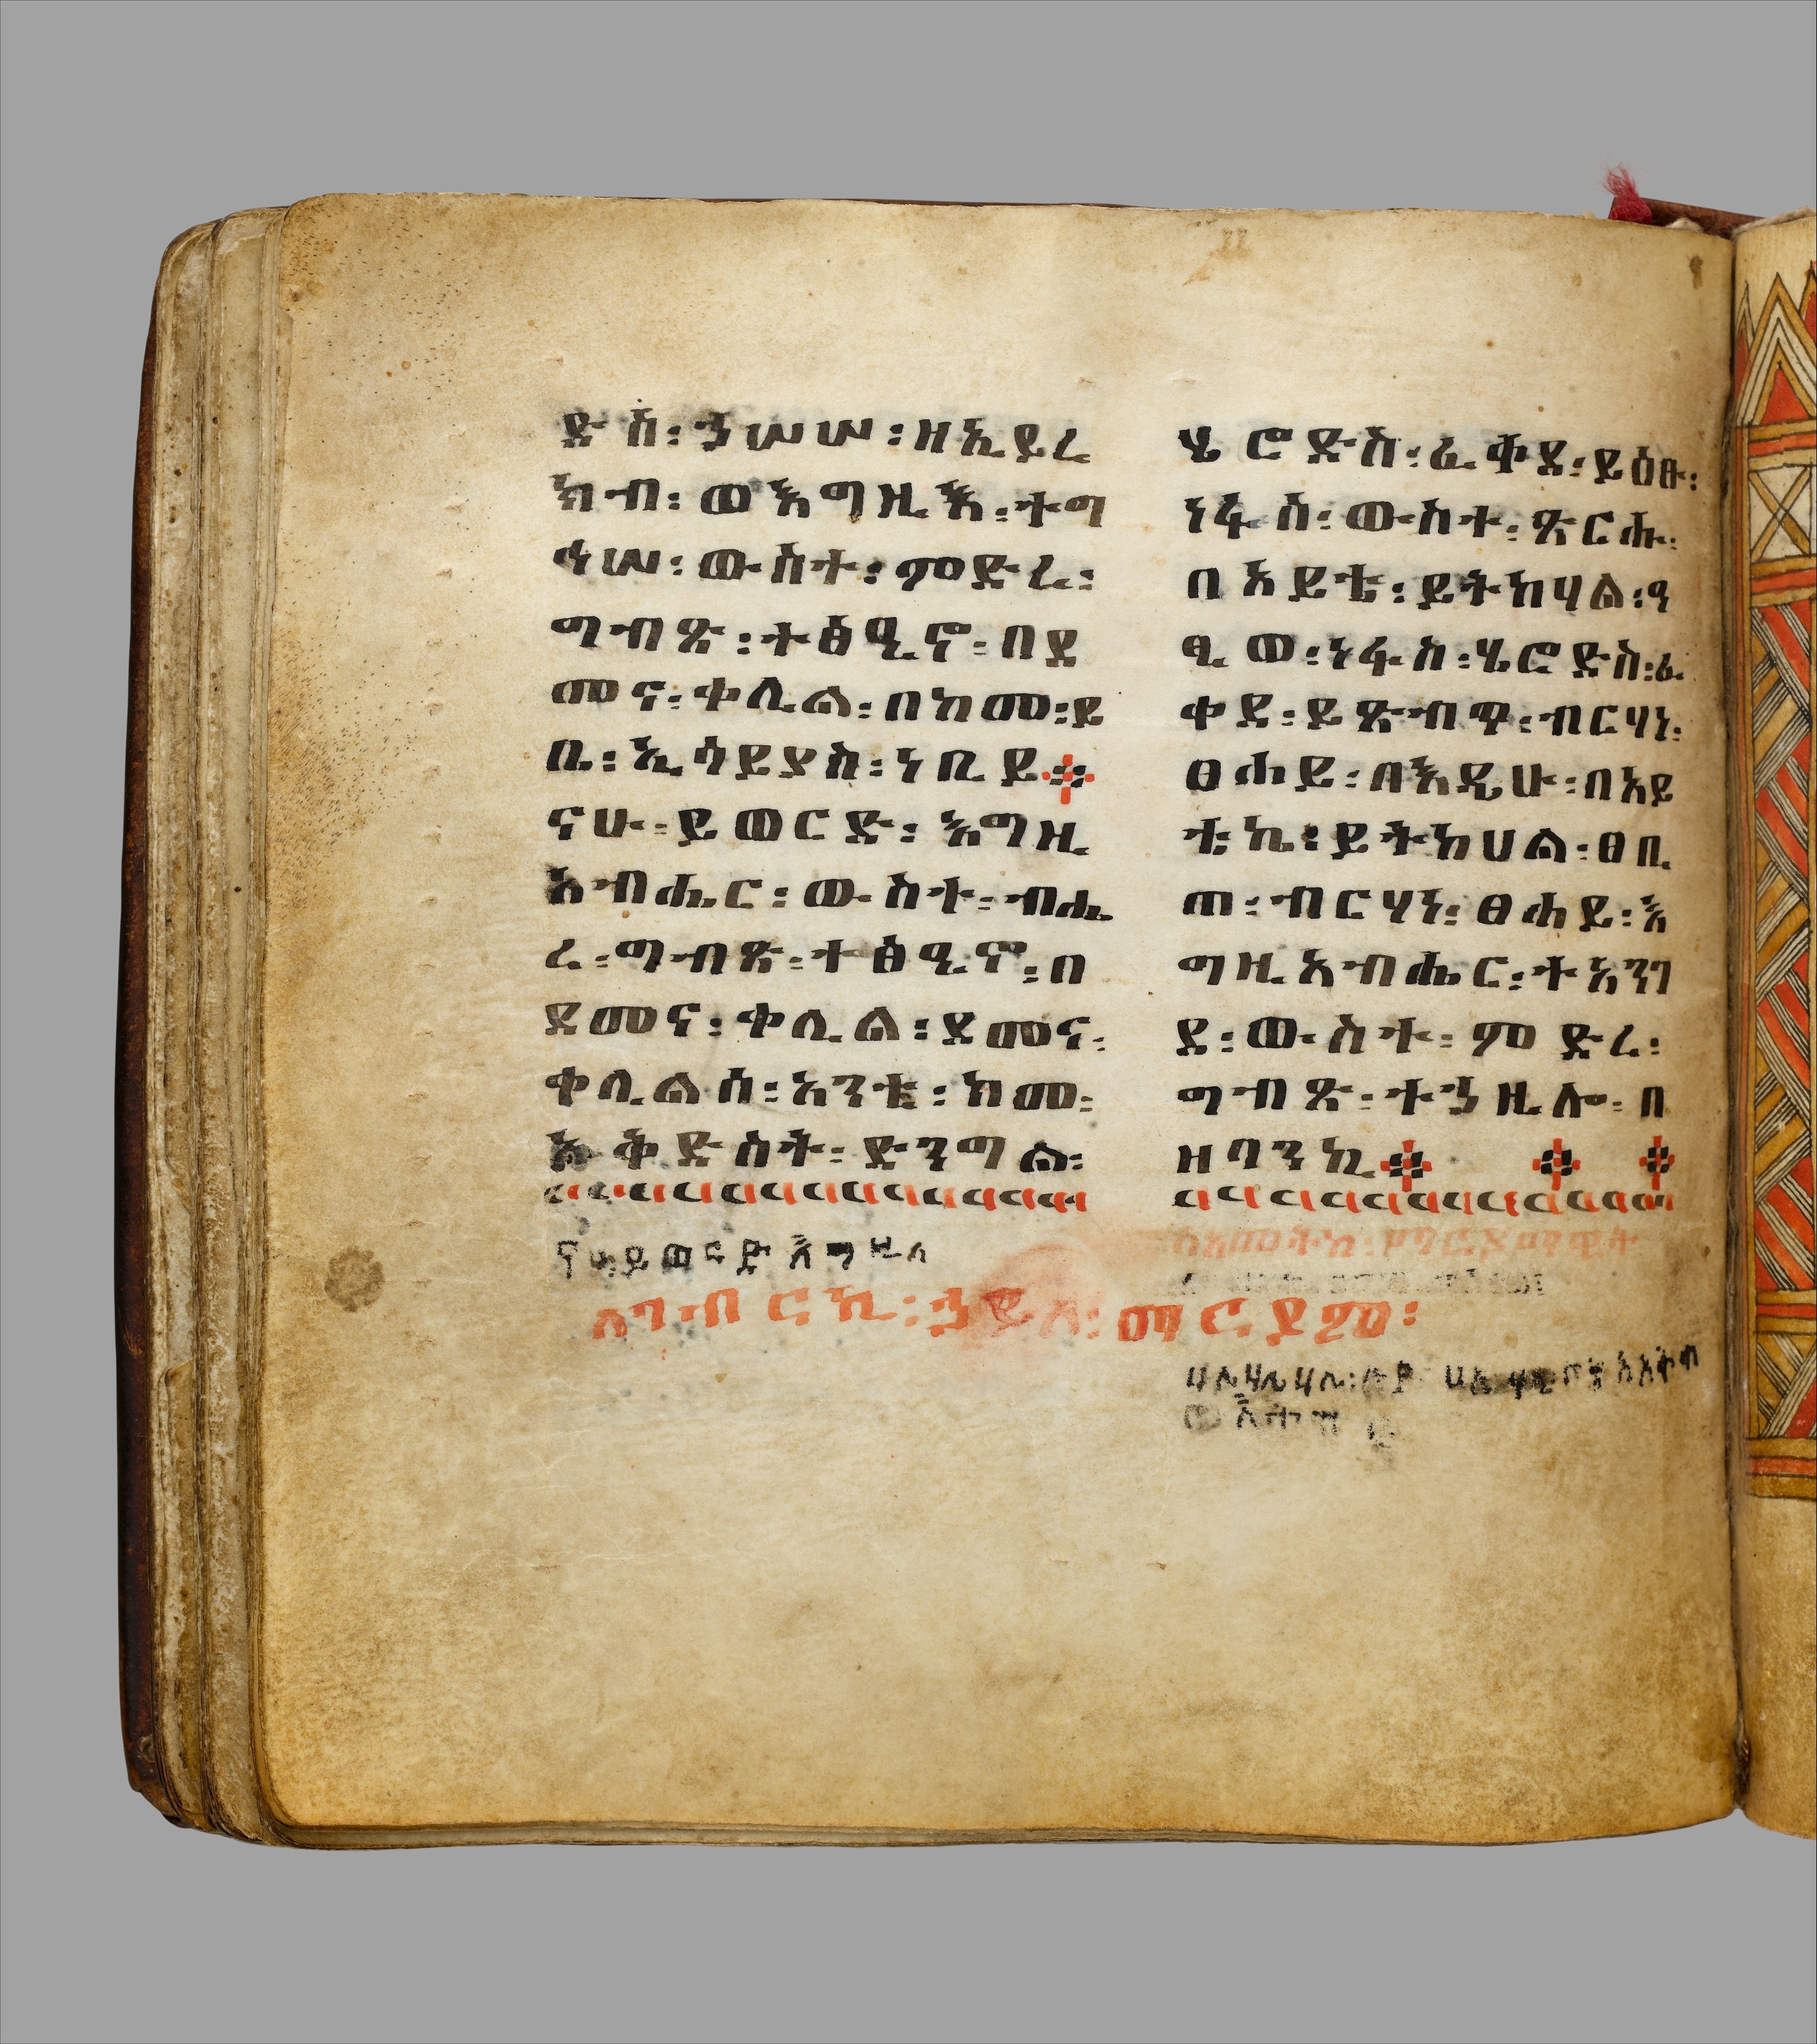 ድ ስ፡ ኃሠሠ፡ ዘኢይረ
ክብ፡ ወእግዚእ፡ ተግ
ኃሠ፡ ውስተ፡ ምድረ፡
ግብጽ፡ ተፅዒኖ፡ በደ
መና፡ ቀሊል፡ በከመ፡ ይ
ቤ፡ ኢሳይያስ፡ ነቢይ።
ናሁ፡ ይወርድ፡ እግዚ
አብሔር፡ ውስተ፡ ብሔ
ረ፡ ግብጽ፡ ተፅዒኖ፡ በ
ደመና፡ ቀሊል፡ ደመና፡
ቀሊልሰ፡ አንቲ፡ ከመ፡
እ ቅድስት፡ ድንግል፡
ናሁ ይወርድ እግዚአ
ሄሮድስ፡ ፈቀደ፡ ይዕፁ፡
ነፋሰ፡ ውስተ፡ ጽርሑ፡
በአይቴ፡ ይትከሃል፡ ዓ
ፂወ፡ ነፋስ፡ ሄሮድስ፡ ፈ
ቀደ፡ ይጽብጥ፡ ብርሃነ፡
ፀሐይ፡ በእዴሁ፡ በአይ
ቴኬ፡ ይትከሀል፡ ፀቢ
ጠ፡ ብርሃነ፡ ፀሐይ፡ እ
ግዚአብሔር፡ ተአንገ
ደ፡ ውስተ፡ ምድረ፡
ግብጽ፡ ተኃዚሎ፡ በ
ዘባንኪ።
ለገብርኪ፡ ኃይለ፡ ማርያም፡